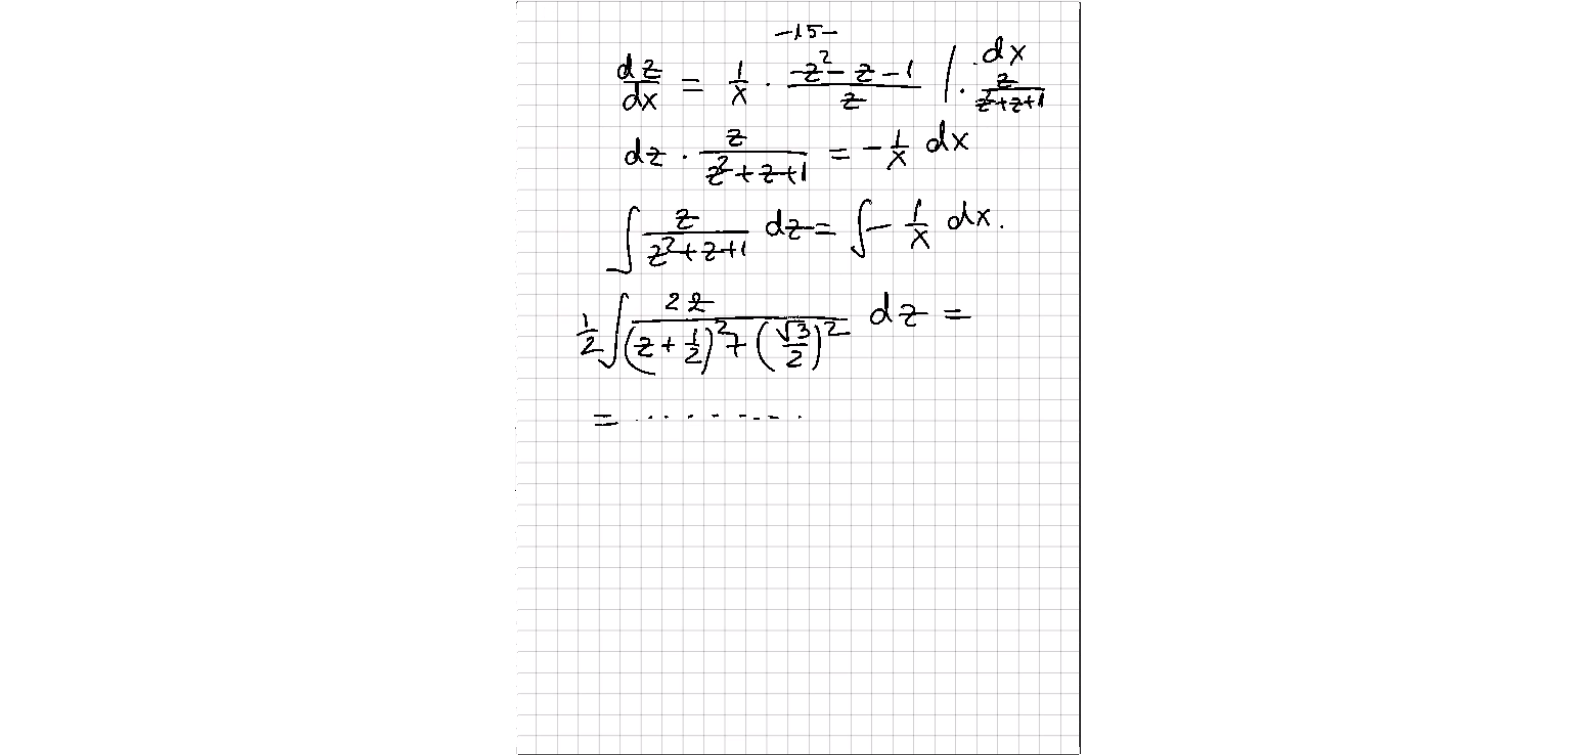 -15-
dz/dx = 1/x · (-z² - z - 1)/z | · dx · z/(z²+z+1)
dz · z/(z²+z+1) = - 1/x dx
∫ z/(z²+z+1) dz = ∫ - 1/x dx.
1/2 ∫ 2z/((z + 1/2)² + (√3/2)²) dz =
= .........